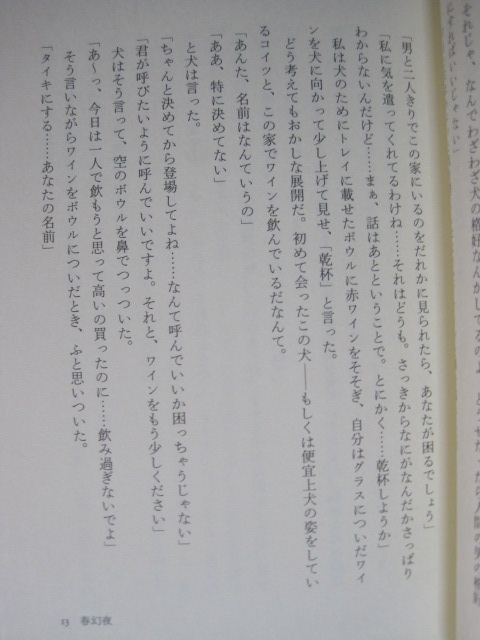 それじゃ、なんでわざわざ犬の格好なんかしてるのよ
にすればいいじゃない」
「男と二人きりでこの家にいるのをだれかに見られたら、あなたが困るでしょう」
「私に気を遣ってくれてるわけね……それはどうも。さっきからなにがなんだかさっぱり
わからないんだけど……まぁ、話はあとということで。とにかく……乾杯しようか」
私は犬のためにトレイに載せたボウルに赤ワインをそそぎ、自分はグラスについだワイ
ンを犬に向かって少し上げて見せ、「乾杯」と言った。
どう考えてもおかしな展開だ。初めて会ったこの犬――もしくは便宜上犬の姿をしてい
るコイツと、この家でワインを飲んでいるだなんて。
「あんた、名前はなんていうの」
「ああ、特に決めてない」
と犬は言った。
「ちゃんと決めてから登場してよね……なんて呼んでいいか困っちゃうじゃない」
「君が呼びたいように呼んでいいですよ。それと、ワインをもう少しください」
犬はそう言って、空のボウルを鼻でつっついた。
「あ〜っ、今日は一人で飲もうと思って高いの買ったのに……飲み過ぎないでよ」
そう言いながらワインをボウルについだとき、ふと思いついた。
「タイキにする……あなたの名前」
13 春幻夜